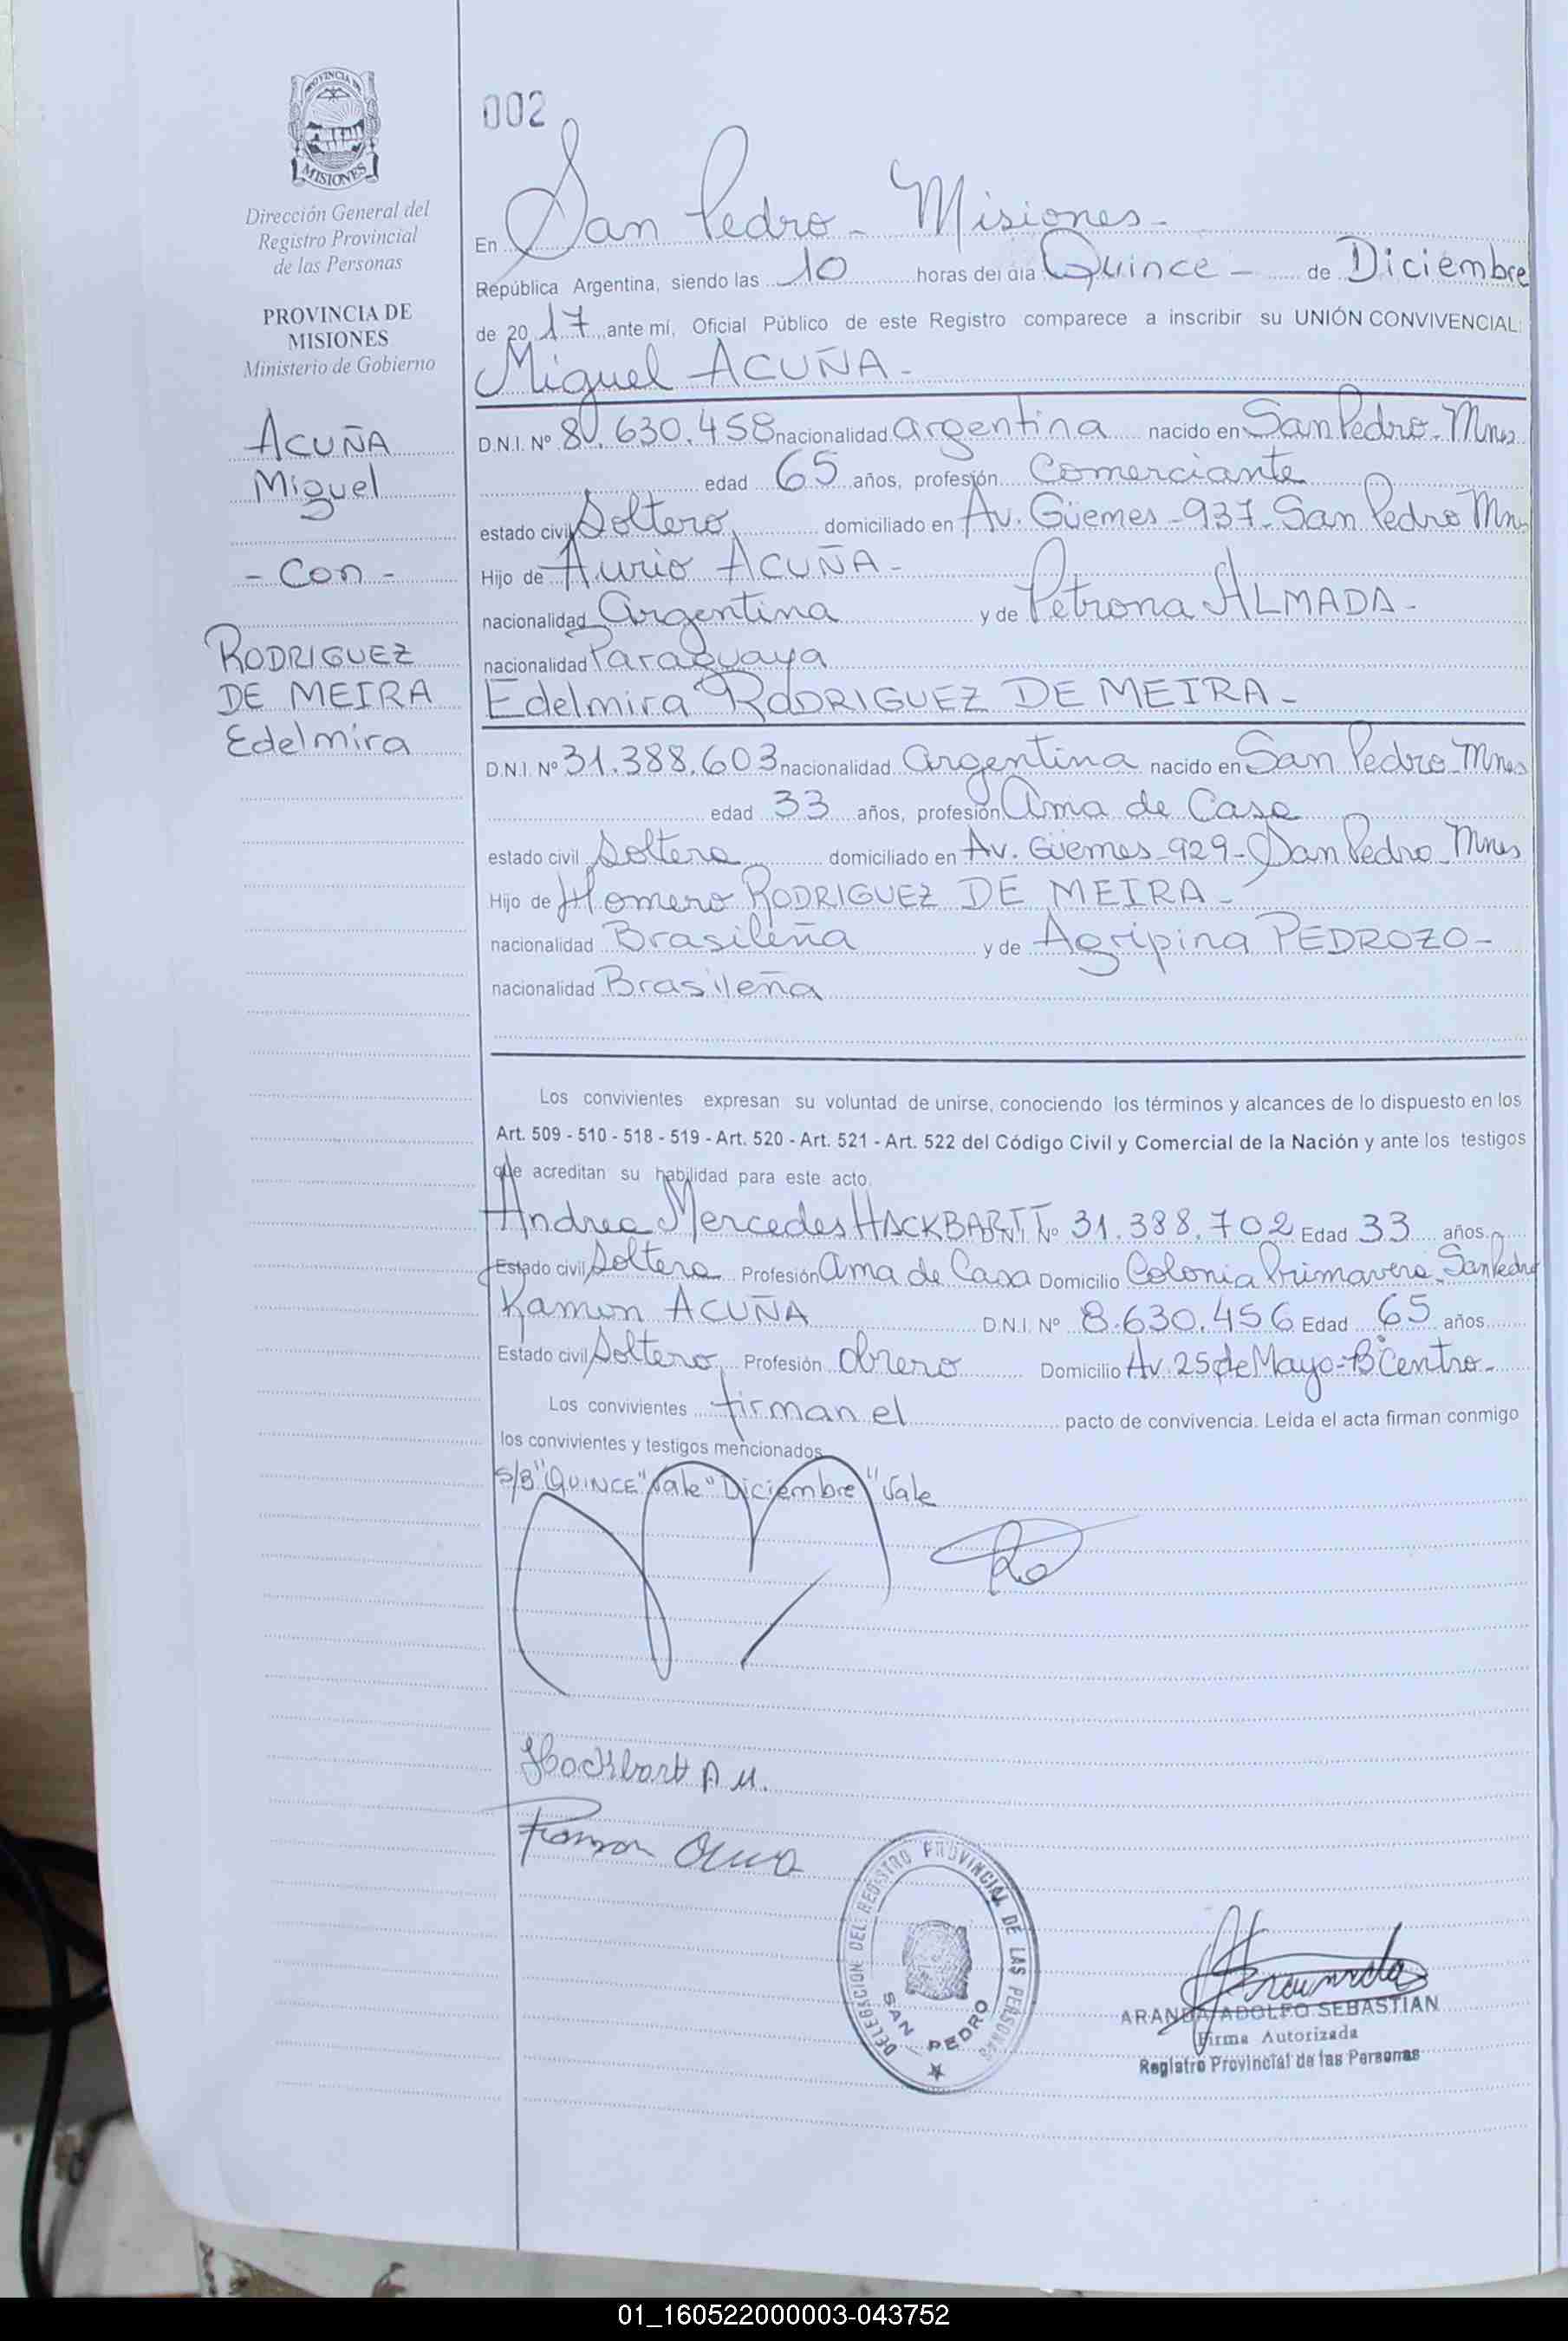 PROVINCIA DE
MISIONES
Dirección General del
Registro Provincial
de las Personas
PROVINCIA DE
MISIONES
Ministerio de Gobierno
ACUÑA
Miguel
- Con -
RODRIGUEZ
DE MEIRA
Edelmira
002
En San Pedro - Misiones -
República Argentina, siendo las 10 horas del día Quince - de Diciembre
de 2017 ante mí, Oficial Público de este Registro comparece a inscribir su UNIÓN CONVIVENCIAL:
Miguel ACUÑA -
D.N.I. Nº 8.630.458 nacionalidad argentina nacido en San Pedro - Mnes
edad 65 años, profesión Comerciante
estado civil Soltero domiciliado en Av. Güemes - 937 - San Pedro Mnes
Hijo de Aurio ACUÑA -
nacionalidad argentina y de Petrona ALMADA -
nacionalidad Paraguaya
Edelmira RODRIGUEZ DE MEIRA -
D.N.I. Nº 31.388.603 nacionalidad argentina nacido en San Pedro - Mnes
edad 33 años, profesión ama de Casa
estado civil Soltera domiciliado en Av. Güemes - 929 - San Pedro - Mnes
Hijo de Homero RODRIGUEZ DE MEIRA -
nacionalidad Brasileña y de Agripina PEDROZO -
nacionalidad Brasileña
Los convivientes expresan su voluntad de unirse, conociendo los términos y alcances de lo dispuesto en los
Art. 509 - 510 - 518 - 519 - Art. 520 - Art. 521 - Art. 522 del Código Civil y Comercial de la Nación y ante los testigos
que acreditan su habilidad para este acto.
Andrea Mercedes HACKBARTT D.N.I. Nº 31.388.702 Edad 33 años
Estado civil Soltera Profesión ama de Casa Domicilio Colonia Primavera - San Pedro
Ramon ACUÑA D.N.I. Nº 8.630.456 Edad 65 años
Estado civil Soltero Profesión obrero Domicilio Av. 25 de Mayo - Bº Centro -
Los convivientes firman el pacto de convivencia. Leída el acta firman conmigo
los convivientes y testigos mencionados
S/B "QUINCE" Vale "Diciembre" Vale
Hackbartt A M.
Ramon
DELEGACION DEL REGISTRO PROVINCIAL DE LAS PERSONAS
SAN PEDRO
ARANDA ADOLFO SEBASTIAN
Firma Autorizada
Registro Provincial de las Personas
01_160522000003-043752